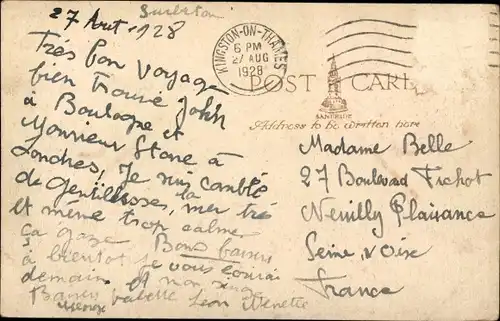 Surbiton
27 Aut 1928
Très bon voyage
bien trouvé John
à Boulogne et
Monsieur Stone à
Londres, Je suis comblé
de gentillesses, la mer très
et même trop calme
ça gaze Bons baisers
à bientôt je vous écrirai
demain et mon
Baisers Léon
KINGSTON-ON-THAMES
6 PM
27 AUG
1928
POST CARD
SANBRIDE
Address to be written here
Madame Belle
27 Boulevard Fichot
Neuilly Plaisance
Seine, et Oise
France